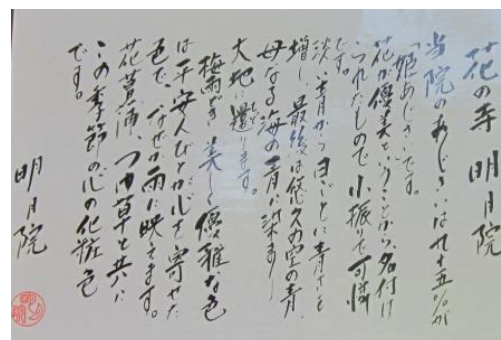 花の寺 明月院
当院のあじさいは九十五%が
「姫あじさい」です。
花が優美ということから、名付け
られたもので小振りで可憐
です。
淡い青から日ごとに青さを
増し、最後は悠久の空の青、
母なる海の青に染まり
大地に還ります。
梅雨どき 美しく優雅な色
は平安人びとが心を寄せた
色で、なぜか雨に映えます。
花菖蒲、つゆ草と共に
この季節の心の化粧色
です。
明月院